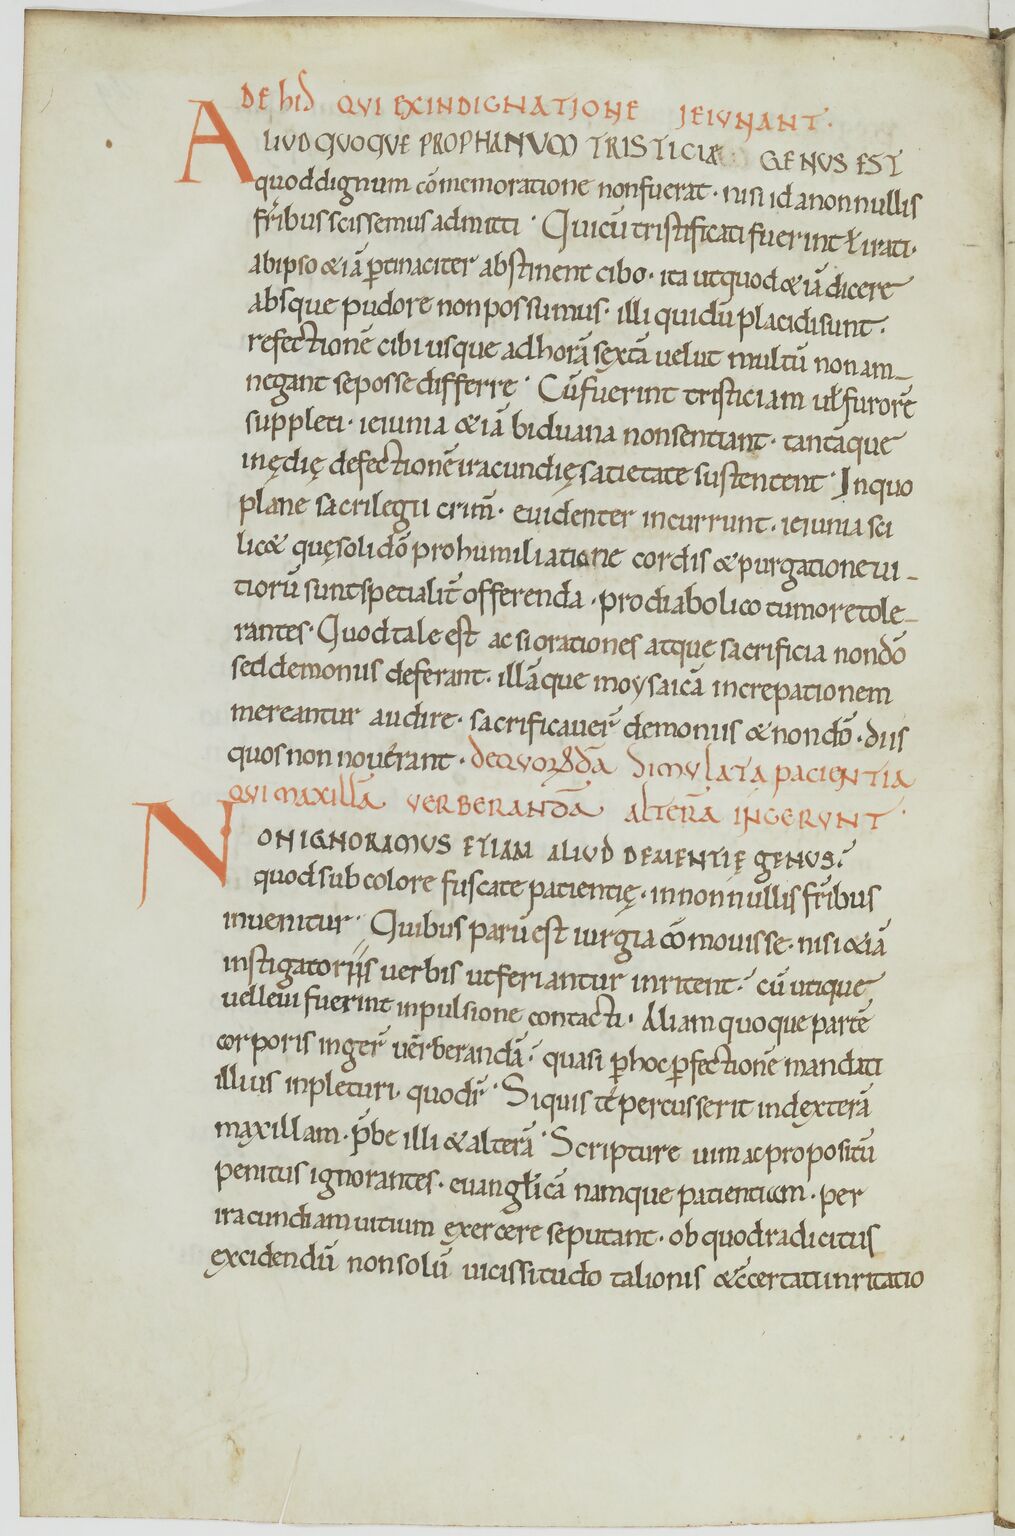 DE hiS QUI EXINDIGNATIONE IEIUNANT.
ALIUD QUOQUE PROPHANUM TRISTICIAE GENUS EST
quod dignum cōmemoratione non fuerat · nisi id a nonnullis
fr̄ibus scissemus admitti · Quicū tristificati fuerint ł irati ·
ab ipso & iā ꝑtinaciter abstinent cibo · ita ut quod & iā dicere
absque pudore non possumus · illi qui dū placidi sunt ·
refectionē cibi usque ad horā sextā uel ut multū nonam_
negant se posse differre · Cū fuerint tristiciam uł furorē
suppleti · ieiunia & iā biduana non sentiant · tantāque
inędię defectionē iracundię satietate sustentent · In quo
plane sacrilegii crim̄ · euidenter incurrunt · ieiunia sci
lic& quę soli dō pro humiliatione cordis & purgatione ui_
tiorū sunt specialit̄ offerenda · pro diabolico tumore tole_
rantes · Quod tale est ac si orationes atque sacrificia non dō
sed demoniis deferant · illāque moysaicā increpationem
mereantur audire · sacrificauer̄ demoniis & non dō · diis
quos non nouerant · de quorūdā Simulata paCIENTIA
QUI MAXILLĀ UERBERANDĀ alterā INGERUNT ·
NON IGNORAMUS ETIAM ALIUD DEMENTIĘ GENUS ·
quod sub colore fuscate patientię · in nonnullis fr̄ibus
inuenitur · Quibus parū est iurgia cōmouisse · nisi & iā
instigatoriis uerbis ut feriantur inritent · cū utique
uel leui fuerint inpulsione contacti · Aliam quoque partē
corporis inger̄ uerberandā · quasi ꝑ hoc ꝑfectionē mandati
illius inpleturi · quod · Si quis te percusserit in dexterā
maxillam · p̄be illi & alterā · Scripture uim ac propositū
penitus ignorantes · euangłicā namque patientiam · per
iracundiam uitium exercere se putant · ob quod radicitus
excidendū non solū uicissitudo talionis & certati inritatio